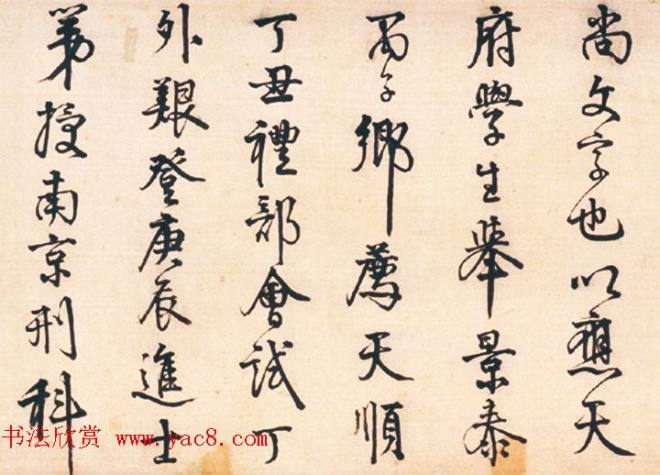 尚文字也以應天
府學生舉景泰
丙子鄉薦天順
丁丑禮部會試丁
外艱登庚辰進士
第授南京刑科
书法欣赏 www.yac8.com